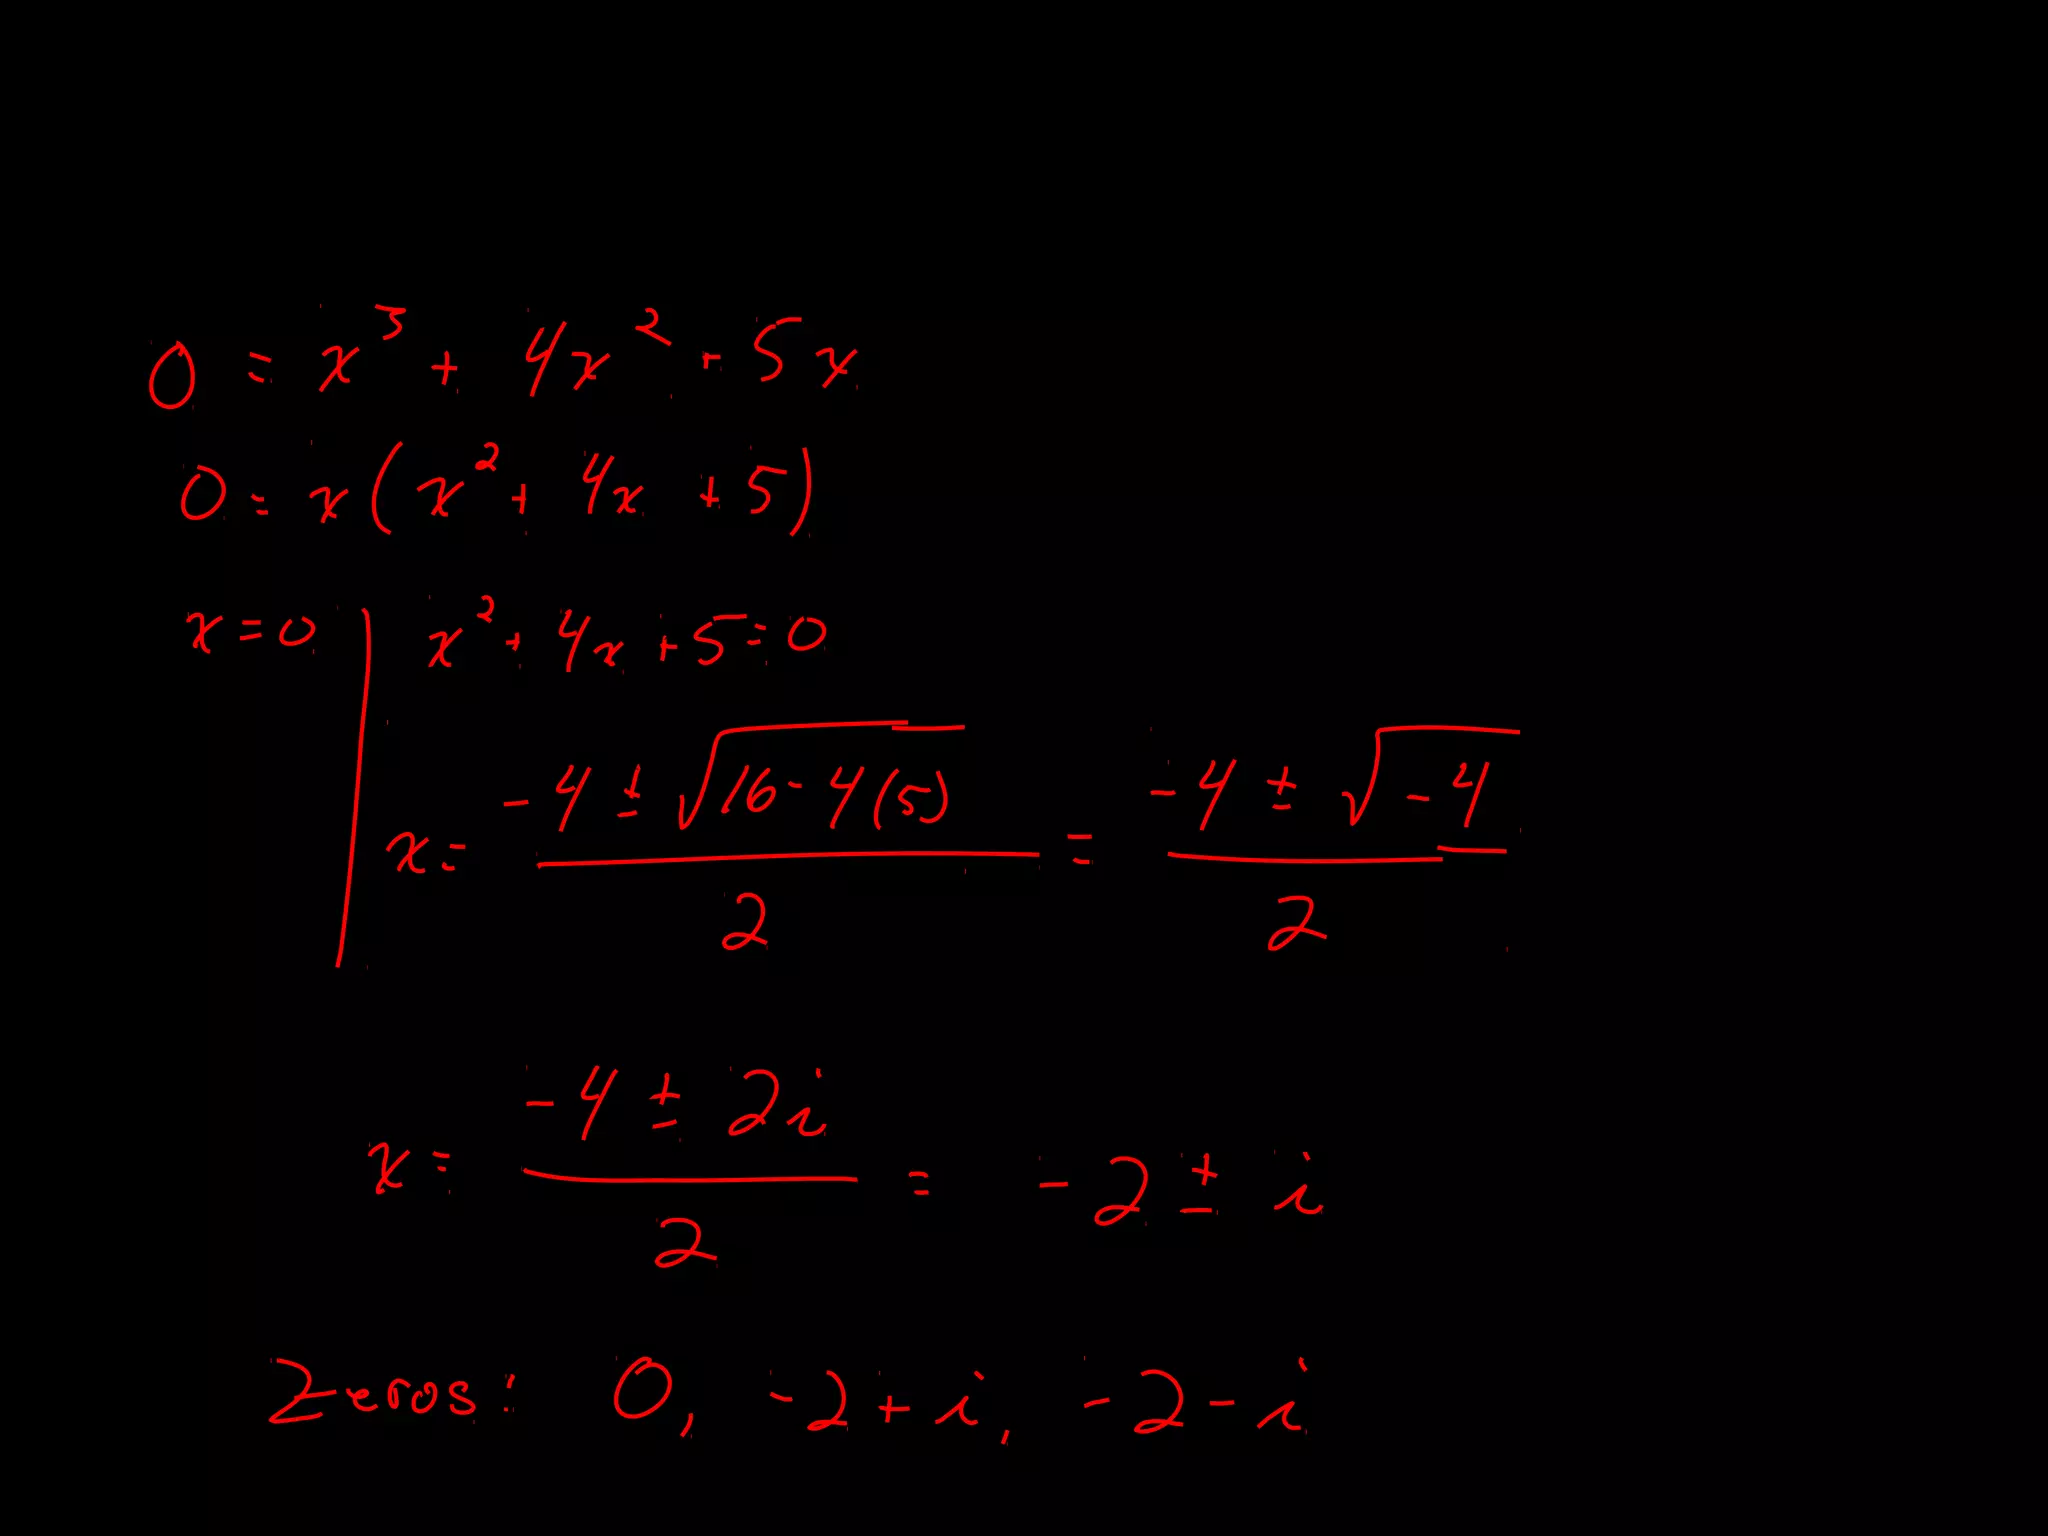 0 = x³ + 4x² + 5x
0 = x(x² + 4x + 5)
x = 0 | x² + 4x + 5 = 0
x = (-4 ± √(16 - 4(5))) / 2 = (-4 ± √(-4)) / 2
x = (-4 ± 2i) / 2 = -2 ± i
Zeros: 0, -2 + i, -2 - i